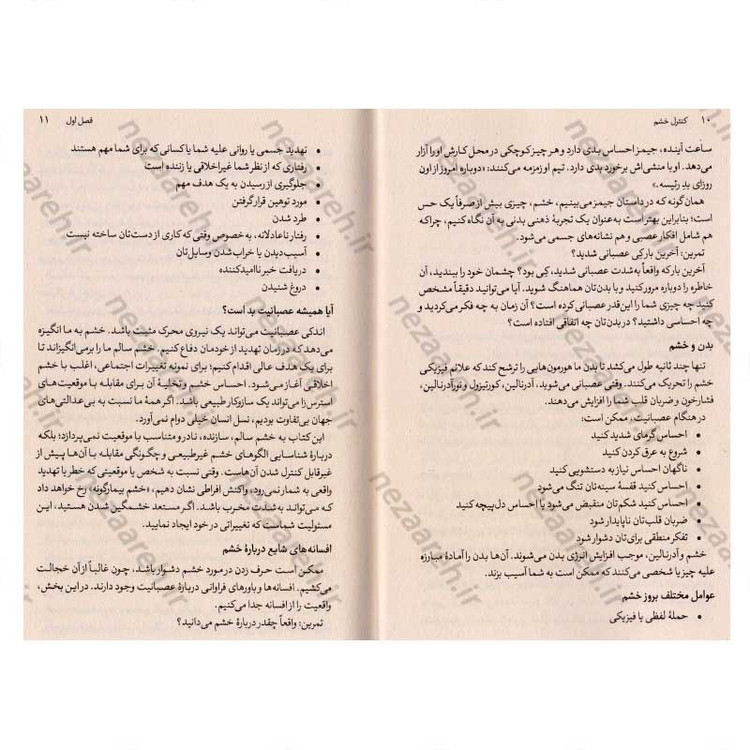 ۱۰ کنترل خشم
ساعت آینده، جیمز احساس بدی دارد و هر چیز کوچکی در محل کارش او را آزار
می‌دهد. او با منشی‌اش برخورد بدی دارد. تیم او زمزمه می‌کنند: «دوباره امروز از اون
روزای بدِ رئیسه.»
همان‌گونه که در داستان جیمز می‌بینیم، خشم، چیزی بیش از صرفاً یک حس
است؛ بنابراین بهتر است به‌عنوان یک تجربهٔ ذهنی بدنی به آن نگاه کنیم، چراکه
هم شامل افکار عصبی و هم نشانه‌های جسمی می‌شود.
تمرین: آخرین بار کِی عصبانی شدید؟
آخرین بار که واقعاً به‌شدت عصبانی شدید، کِی بود؟ چشمان خود را ببندید، آن
خاطره را دوباره مرور کنید و با بدن‌تان هماهنگ شوید. آیا می‌توانید دقیقاً مشخص
کنید چه چیزی شما را این‌قدر عصبانی کرده است؟ آن زمان به چه فکر می‌کردید و
چه احساسی داشتید؟ در بدن‌تان چه اتفاقی افتاده است؟
بدن و خشم
تنها چند ثانیه طول می‌کشد تا بدن ما هورمون‌هایی را ترشح کند که علائم فیزیکی
خشم را تحریک می‌کنند. وقتی عصبانی می‌شوید، آدرنالین، کورتیزول و نورآدرنالین،
فشارخون و ضربان قلب شما را افزایش می‌دهند.
در هنگام عصبانیت، ممکن است:
• احساس گرمای شدید کنید
• شروع به عرق کردن کنید
• ناگهان احساس نیاز به دستشویی کنید
• احساس کنید قفسهٔ سینه‌تان تنگ می‌شود
• احساس کنید شکم‌تان منقبض می‌شود یا احساس دل‌پیچه کنید
• ضربان قلب‌تان ناپایدار شود
• تفکر منطقی برای‌تان دشوار شود
خشم و آدرنالین، موجب افزایش انرژی بدن می‌شوند. آن‌ها بدن را آمادهٔ مبارزه
علیه چیز یا شخصی می‌کنند که ممکن است به شما آسیب بزند.
عوامل مختلف بروز خشم
• حملهٔ لفظی یا فیزیکی
فصل اول ۱۱
• تهدید جسمی یا روانی علیه شما یا کسانی که برای شما مهم هستند
• رفتاری که از نظر شما غیراخلاقی یا زننده است
• جلوگیری از رسیدن به یک هدف مهم
• مورد توهین قرار گرفتن
• طرد شدن
• رفتار ناعادلانه، به خصوص وقتی که کاری از دست‌تان ساخته نیست
• آسیب‌دیدن یا خراب‌شدن وسایل‌تان
• دریافت خبر ناامیدکننده
• دروغ شنیدن
آیا همیشه عصبانیت بد است؟
اندکی عصبانیت می‌تواند یک نیروی محرک مثبت باشد. خشم به ما انگیزه
می‌دهد که در زمان تهدید از خودمان دفاع کنیم. خشم سالم ما را برمی‌انگیزاند تا
برای یک هدف عالی اقدام کنیم؛ برای نمونه تغییرات اجتماعی، اغلب با خشم
اخلاقی آغاز می‌شود. احساس خشم و تخلیهٔ آن برای مقابله با موقعیت‌های
استرس‌زا می‌تواند یک سازوکار طبیعی باشد. اگر همهٔ ما نسبت به بی‌عدالتی‌های
جهان بی‌تفاوت بودیم، نسل انسان خیلی دوام نمی‌آورد.
این کتاب به خشم سالم، سازنده، نادر و متناسب با موقعیت نمی‌پردازد؛ بلکه
دربارهٔ شناسایی الگوهای خشم غیرطبیعی و چگونگی مقابله با آن‌ها پیش از
غیرقابل کنترل شدن آن‌هاست. وقتی نسبت به شخص یا موقعیتی که خطر یا تهدید
واقعی به شمار نمی‌رود، واکنش افراطی نشان دهیم، «خشم بیمارگونه» رخ خواهد داد
که می‌تواند به‌شدت مخرب باشد. اگر مستعد خشمگین شدن هستید، این
مسئولیت شماست که تغییراتی در خود ایجاد نمایید.
افسانه‌های شایع دربارهٔ خشم
ممکن است حرف زدن در مورد خشم دشوار باشد، چون غالباً از آن خجالت
می‌کشیم. افسانه‌ها و باورهای فراوانی دربارهٔ عصبانیت وجود دارند. در این بخش،
واقعیت را از افسانه جدا می‌کنیم.
تمرین: واقعاً چقدر دربارهٔ خشم می‌دانید؟
nezaareh.ir